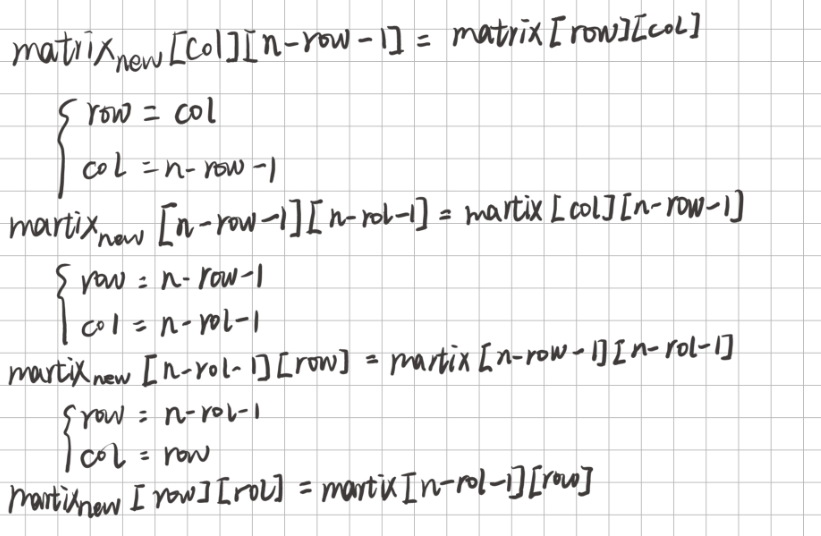 matrix_new [col][n-row-1] = matrix[row][col]
row = col
col = n-row-1
martix_new [n-row-1][n-rol-1] = martix[col][n-row-1]
row = n-row-1
col = n-rol-1
martix_new [n-rol-1][row] = martix[n-row-1][n-rol-1]
row = n-rol-1
col = row
martix_new [row][rol] = martix[n-rol-1][row]